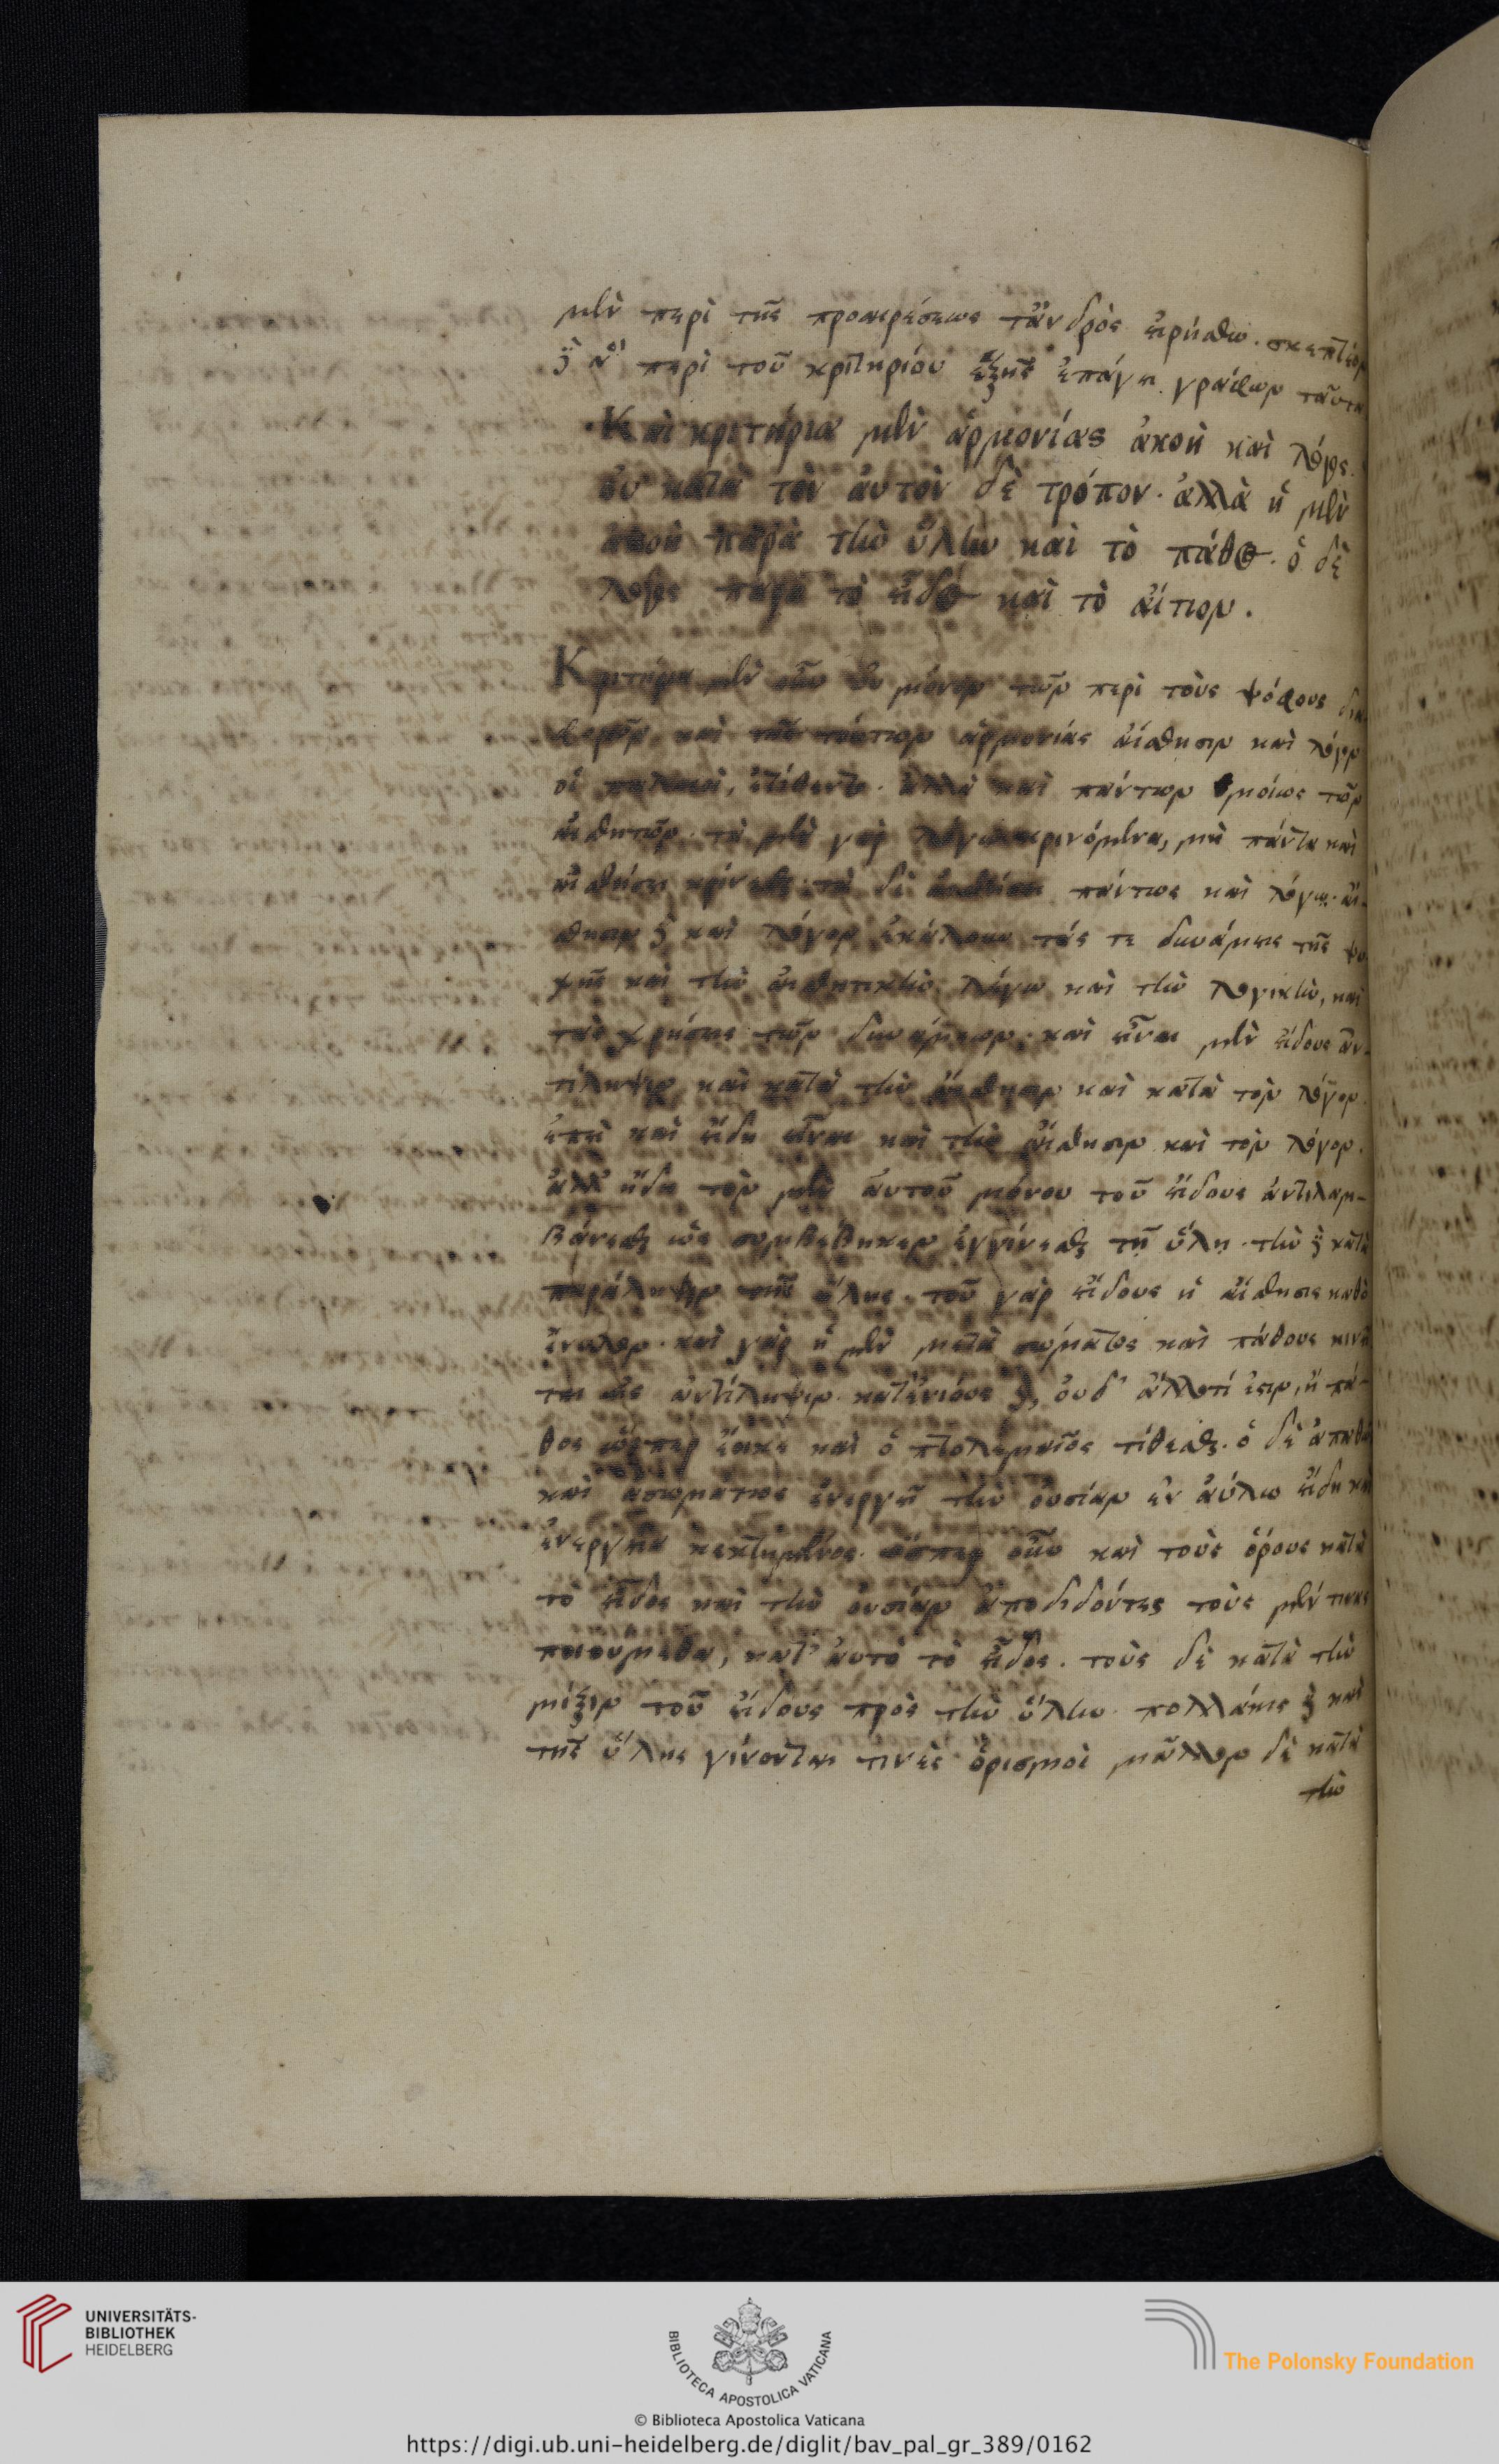 μὲν περὶ τῆς προαιρέσεως τἀνδρὸς εἰρήσθω. σκεπτέον
δὲ περὶ τοῦ κριτηρίου ἑξῆς ἐπάγει γράφων ταῦτα
Καὶ κριτήρια μὲν ἁρμονίας ἀκοὴ καὶ λόγος.
οὐ κατὰ τὸν αὐτὸν δὲ τρόπον. ἀλλὰ ἡ μὲν
ἀκοὴ παρὰ τὴν ὕλην καὶ τὸ πάθος. ὁ δὲ
λόγος παρὰ τὸ εἶδος καὶ τὸ αἴτιον.
Κριτήρια μὲν οὖν οὐ μόνον τῶν περὶ τοὺς ψόφους δια
φορῶν καὶ τῆς τούτων ἁρμονίας αἴσθησιν καὶ λόγον
οἱ παλαιοὶ ἐτίθεντο. ἀλλὰ καὶ πάντων ὁμοίως τῶν
αἰσθητῶν. τὰ μὲν γὰρ λόγῳ κρινόμενα, μὴ πάντα καὶ
αἰσθήσει κρίνεσθαι. τὰ δὲ αἰσθήσει πάντως καὶ λόγῳ. αἴ-
σθησιν δὲ καὶ λόγον ἐκάλουν τάς τε δυνάμεις τῆς ψυ
χῆς καὶ τὴν αἰσθητικὴν λέγω καὶ τὴν λογικὴν, καὶ
τὰς χρήσεις τῶν δυνάμεων. καὶ εἶναι μὲν εἴδους ἀν-
τίληψιν καὶ κατὰ τὴν αἴσθησιν καὶ κατὰ τὸν λόγον.
ἐπεὶ καὶ εἴδη εἶναι καὶ τὴν αἴσθησιν καὶ τὸν λόγον.
ἀλλ' ἤδη τὸν μὲν αὐτοῦ μόνου τοῦ εἴδους ἀντιλαμ-
βάνεσθαι ὡς συμβέβηκεν ἐγγίνεσθαι τῇ ὕλῃ. τὴν δὲ κατὰ
παράληψιν τῆς ὕλης. τοῦ γὰρ εἴδους ἡ αἴσθησις καθὸ
ἔνυλον. καὶ γὰρ ἡ μὲν μετὰ σώματος καὶ πάθους κινεῖ
ται εἰς ἀντίληψιν. κατ' ἐνίους δὲ, οὐδ' ἄλλο τί ἐστιν, ἢ πά-
θος ὥσπερ ἔοικε καὶ ὁ πτολεμαῖος τίθεσθαι. ὁ δὲ ἀπαθῶς
καὶ ἀσωμάτως ἐνεργεῖ τὴν οὐσίαν ἐν ἀύλῳ εἴδη καὶ
ἐνεργείᾳ κεκτημένος. ὥσπερ οὖν καὶ τοὺς ὅρους κατὰ
τὸ εἶδος καὶ τὴν οὐσίαν ἀποδιδόντες τοὺς μέν τινας
ποιούμεθα, κατ' αὐτὸ τὸ εἶδος. τοὺς δὲ κατὰ τὴν
μίξιν τοῦ εἴδους πρὸς τὴν ὕλην. πολλάκις δὲ καὶ
τῆς ὕλης γίνονται τινὲς ὁρισμοὶ μᾶλλον δὲ κατὰ
τὴν
UNIVERSITÄTS-
BIBLIOTHEK
HEIDELBERG
BIBLIOTECA APOSTOLICA VATICANA
The Polonsky Foundation
© Biblioteca Apostolica Vaticana
https://digi.ub.uni-heidelberg.de/diglit/bav_pal_gr_389/0162